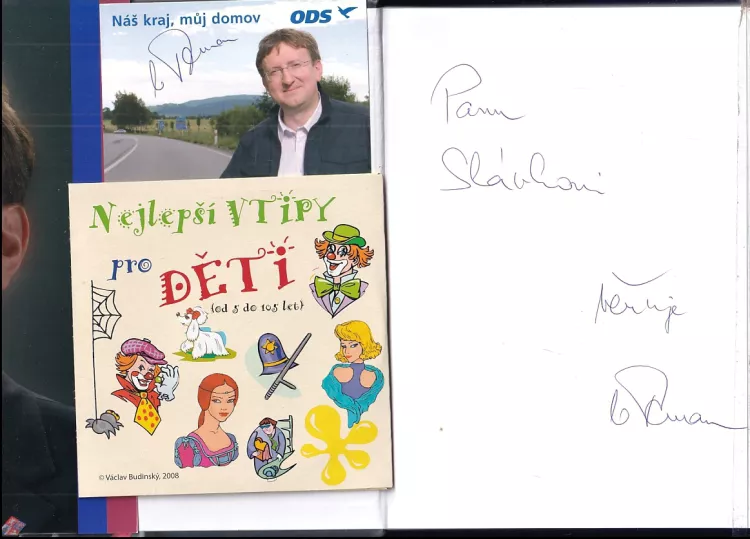 Náš kraj, můj domov
ODS
Nejlepší VTIPY
pro
DĚTI
(od 5 do 105 let)
© Václav Budinský, 2008
Panu
Slávkovi
věnuje